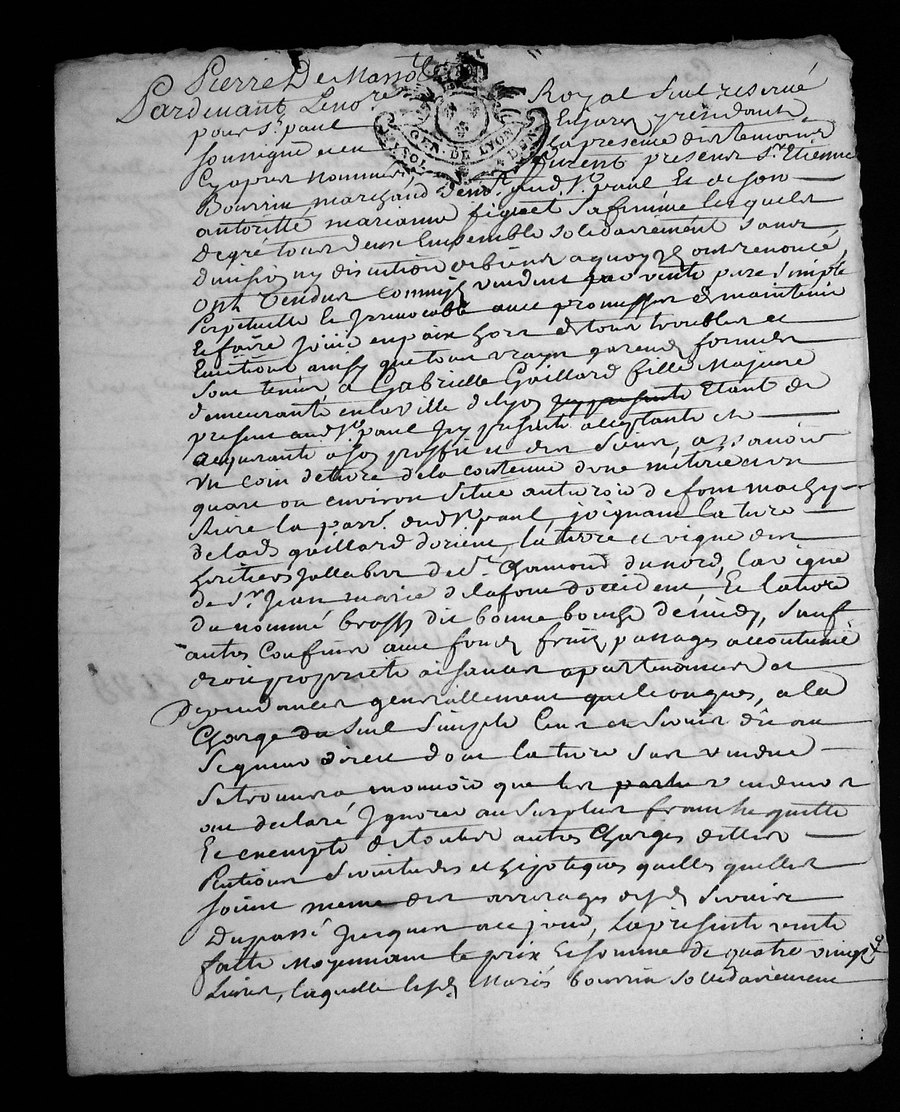 Pierre De Masso
Pardevant Lenore Royal Seul reservé
pour St. paul Enjarez y residant
soussigné et en la presence des temoins
Cyapres nommes furent presens Sr. Etienne
Bourrin marchand dud. St. paul Et de son
autorité marianne figuet sa femme lesquels
de gré tous deux Ensemble solidairement sans
division ny discution de biens a quoy ils ont renoncé
ont vendus Comme ils vendent par vente pure simple
Perpetuelle et irrevocable avec promesses de maintenir
et faire jouir en paix hors de tous troubles et
Evictions ainsy que tous vrays garends formels
sont tenus a Gabrielle Gaillard fille Majeure
demeurante en la ville de lyon Etant de
present aud. St. paul Icy presente acceptante et
aquerante a son proffit et des siens, a sçavoir
un coin de terre de la contenue d'une méterée un
quart ou environ situé au teroir de
Rive la parr. dud. St. paul, joignant la terre
de lad. gaillard d'orient, la terre et vigne des
heritiers Jallabert de St. Chamond du nord, la vigne
de Sr. Jean marie delafont d'occident Et la terre
du nommé brossy dit bonne bouche de midy, sauf
autres confins avec fonds fruits passages accoutumé
droit proprieté aisances apartenances et
Dependances generallement quelconques, a la
Charge du seul simple Cens et servis dû au
Seigneur direct dont la terre sus vendue
se trouvera mouvoir que les parties
ont declaré Ignorer au surplus franche quitte
Et exempte de toutes autres Charges dettes
Pentions servitudes et hipoteques quelles quelles
soient meme des arrerages desd. servis
Du passé jusques a ce jour, La presente vente
faitte Moyennant le prix Et somme de quatre vingt
Livres, laquelle lesd. Mariés bourrin solidairement
GEN. DE LYON